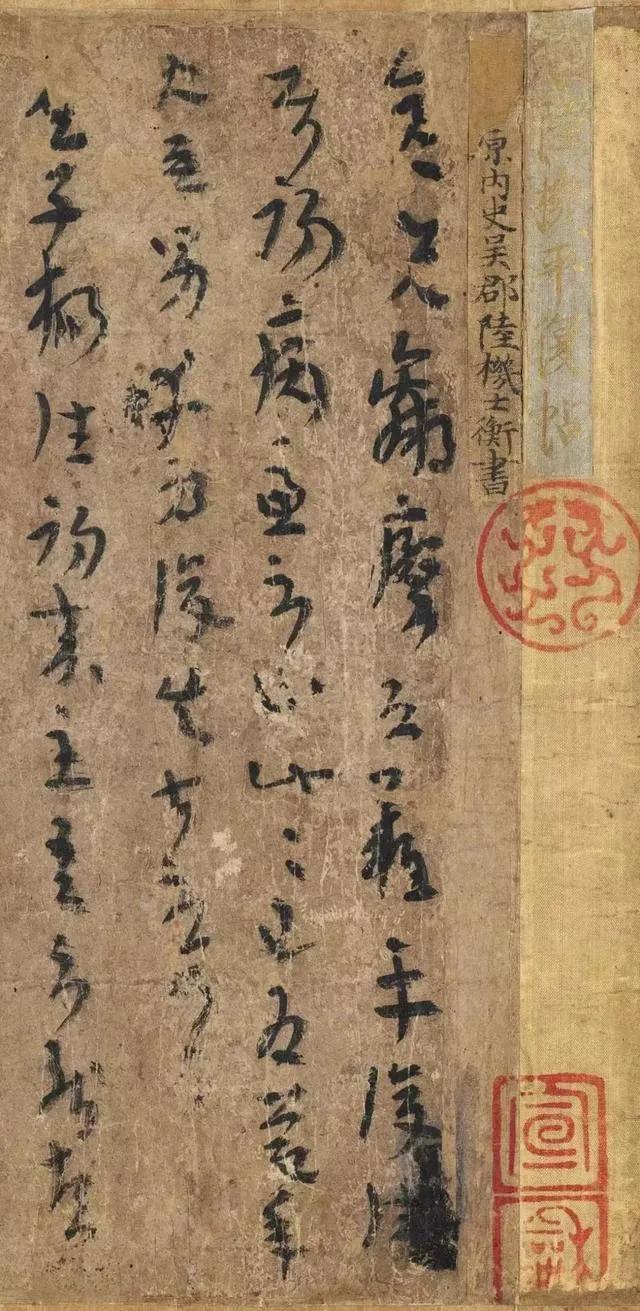 陸機平復帖
原内史吳郡陸機士衡書
彦先羸瘵恐難平復往
屬初病慮不止此〻已為慶承
使唯男幸為復失前憂耳
吳子楊往初來主吾不能盡
宣和